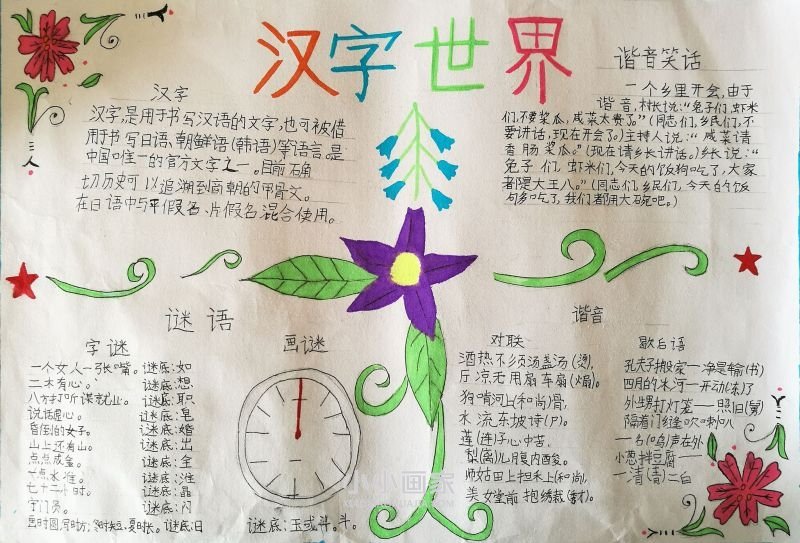 汉字世界
汉字
汉字,是用于书写汉语的文字,也可被借
用于书写日语、朝鲜语(韩语)等语言,是
中国唯一的官方文字之一。目前
切历史可以追溯到商朝的甲骨文。
在日语中与平假名、片假名混合使用。
谐音笑话
一个乡里开会,由于
谐音,村长说:“兔子们,虾米
们,不要桨瓜,咸菜太贵了。”(同志们,乡民们,不
要讲话,现在开会了。)主持人说:“咸菜请
香肠桨瓜。”(现在请乡长讲话。)乡长说:“
兔子们,虾米们,今天的饭狗吃了,大家
都是大王八。”(同志们,乡民们,今天的饭
够吃了,我们都用大碗吧。)
谜语
字谜
一个女人一张嘴。谜底:如
二木有心。谜底:想
八方打听谋就业。谜底:职
说话虚心。谜底:
昏倒的女子。谜底:婚
山上还有山。谜底:出
点点成金。谜底:全
谜底:准
七十二小时。谜底:晶
守门员。谜底:闪
画时圆,写时方;冬时短,夏时长。谜底:日
画谜
谜底:玉或斗。斗。
谐音
对联
酒热不须汤盏汤(烫),
厅凉无用扇车扇(煽)。
狗啃河上(和尚)骨,
水流东坡诗(尸)。
莲(连)子心中苦,
梨(离)儿腹内酸。
师姑田上担禾上(和尚),
美女堂前抱绣裁(秀才)。
歇后语
孔夫子搬家——净是输(书)
四月的冰河——开动(冻)了
外甥打灯笼——照旧(舅)
隔着门缝吹喇叭
——名(鸣)声在外
小葱拌豆腐——
一清(青)二白
小小画家